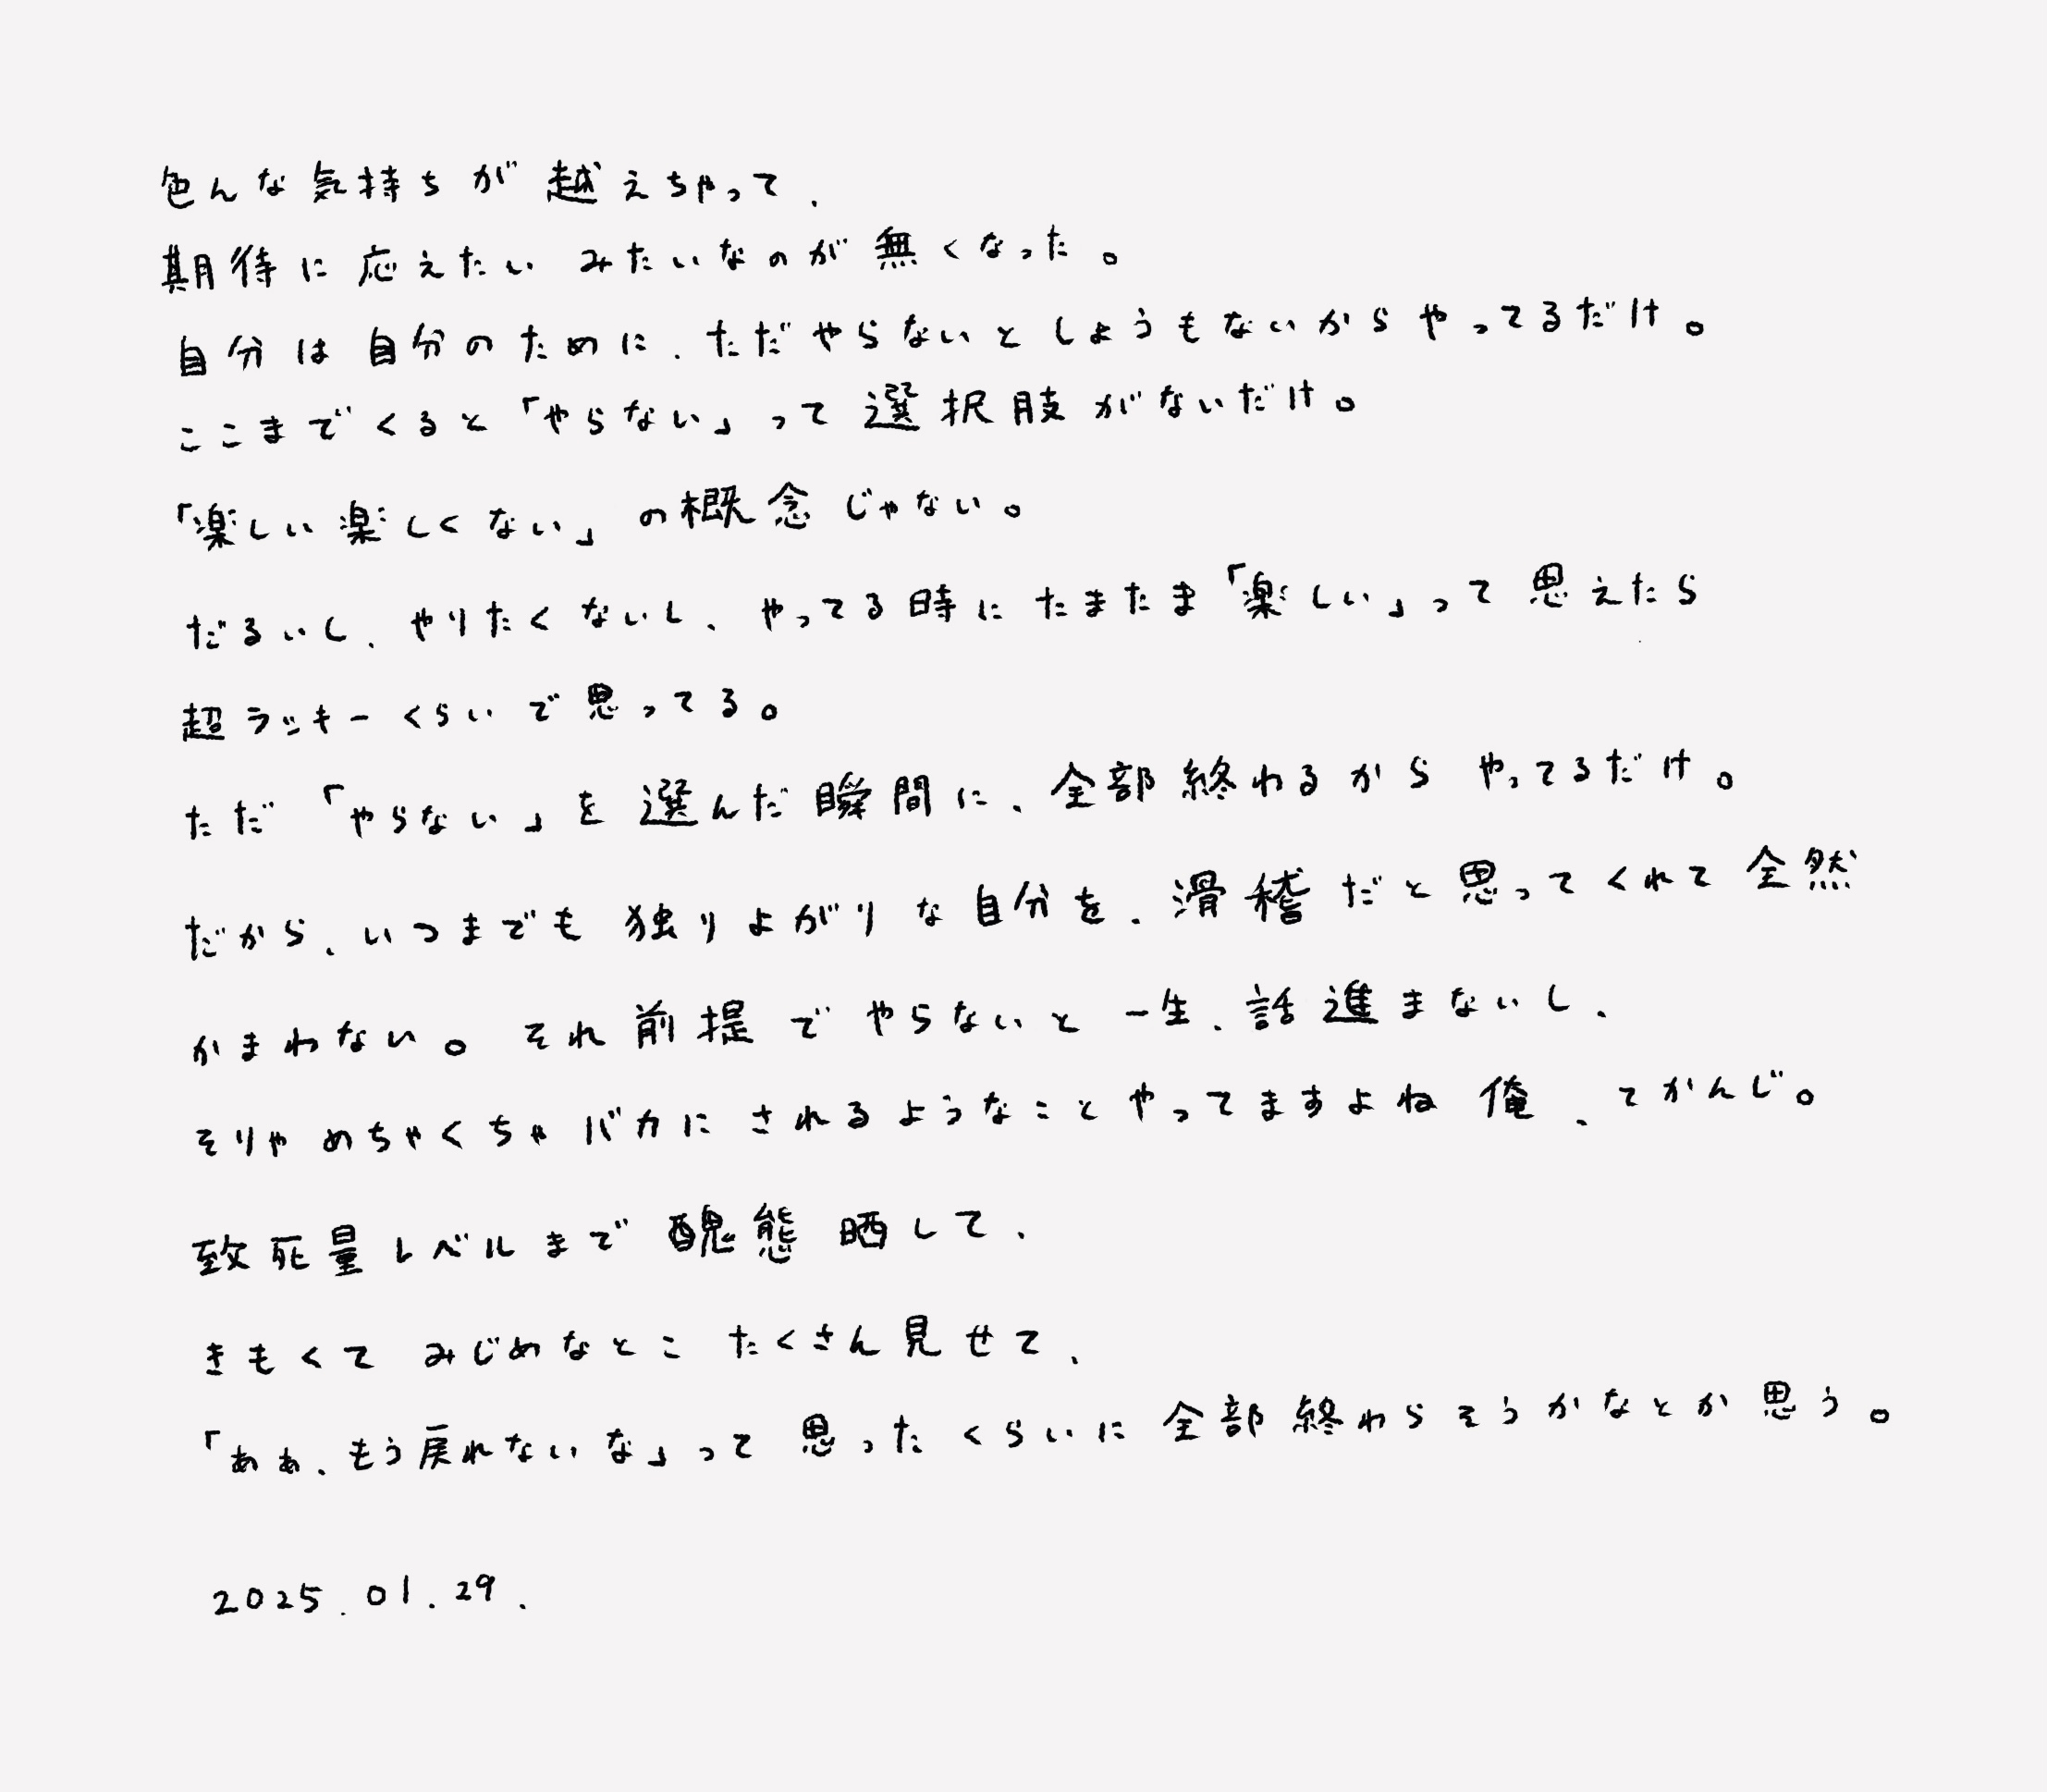 色んな気持ちが越えちゃって、
期待に応えたいみたいなのが無くなった。
自分は自分のために、ただやらないとしょうもないからやってるだけ。
ここまでくると「やらない」って選択肢がないだけ。
「楽しい楽しくない」の概念じゃない。
だるいし、やりたくないし、やってる時にたまたま「楽しい」って思えたら
超ラッキーくらいで思ってる。
ただ「やらない」を選んだ瞬間に、全部終わるからやってるだけ。
だから、いつまでも独りよがりな自分を、滑稽だと思ってくれて全然
かまわない。それ前提でやらないと一生、話進まないし、
そりゃめちゃくちゃバカにされるようなことやってますよね俺、てかんじ。
致死量レベルまで醜態晒して、
きもくてみじめなとこたくさん見せて、
「あぁ、もう戻れないな」って思ったくらいに全部終わらそうかなとか思う。
2025.01.29.